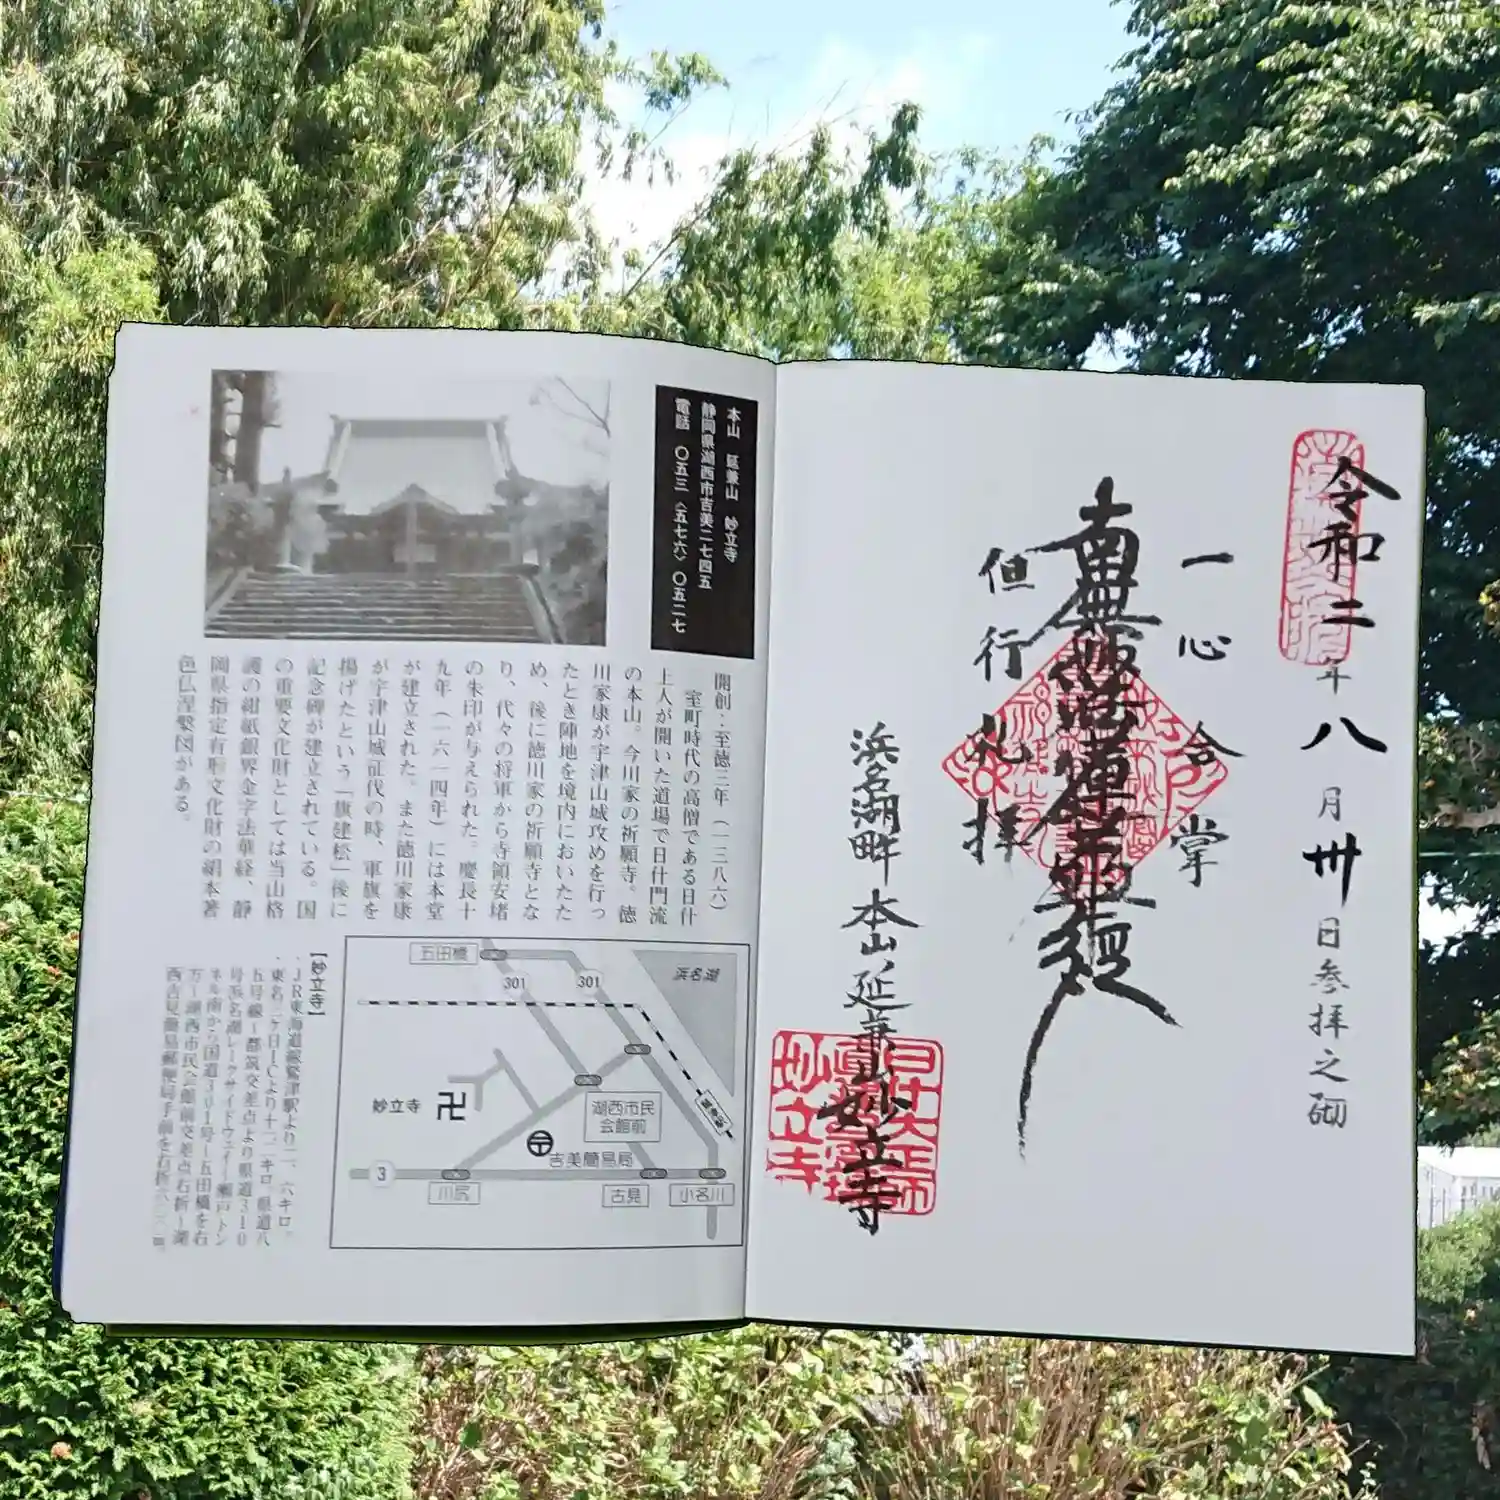 令和二年八月卅日参拝之砌
一心合掌
南無妙法蓮華経
但行礼拝
浜名湖畔 本山 延兼山 妙立寺
妙立寺
本山 延兼山 妙立寺
静岡県湖西市吉美二七四五
電話 〇五三〈五七六〉〇五二七
開創：至徳三年（一三八六）
室町時代の高僧である日什
上人が開いた道場で日什門流
の本山。今川家の祈願寺。徳
川家康が宇津山城攻めを行っ
たとき陣地を境内においたた
め、後に徳川家の祈願寺とな
り、代々の将軍から寺領安堵
の朱印が与えられた。慶長十
九年（一六一四年）には本堂
が建立された。また徳川家康
が宇津山城征伐の時、軍旗を
揚げたという「旗建松」後に
記念碑が建立されている。国
の重要文化財としては当山格
護の紺紙銀界金字法華経、静
岡県指定有形文化財の絹本著
色仏涅槃図がある。
五田橋
301
301
浜名湖
妙立寺
湖西市民
会館前
吉美簡易局
3
川尻
古見
小名川
【妙立寺】
・JR東海道線鷲津駅より二、六キロ。
・東名三ケ日ICより十二キロ。県道八
五号線～都筑交差点より県道310
号浜名湖レークサイドウェイ～瀬戸トン
ネル南から国道301号～五田橋を右
方～湖西市民会館前交差点右折～湖
西吉美簡易郵便局手前を右折